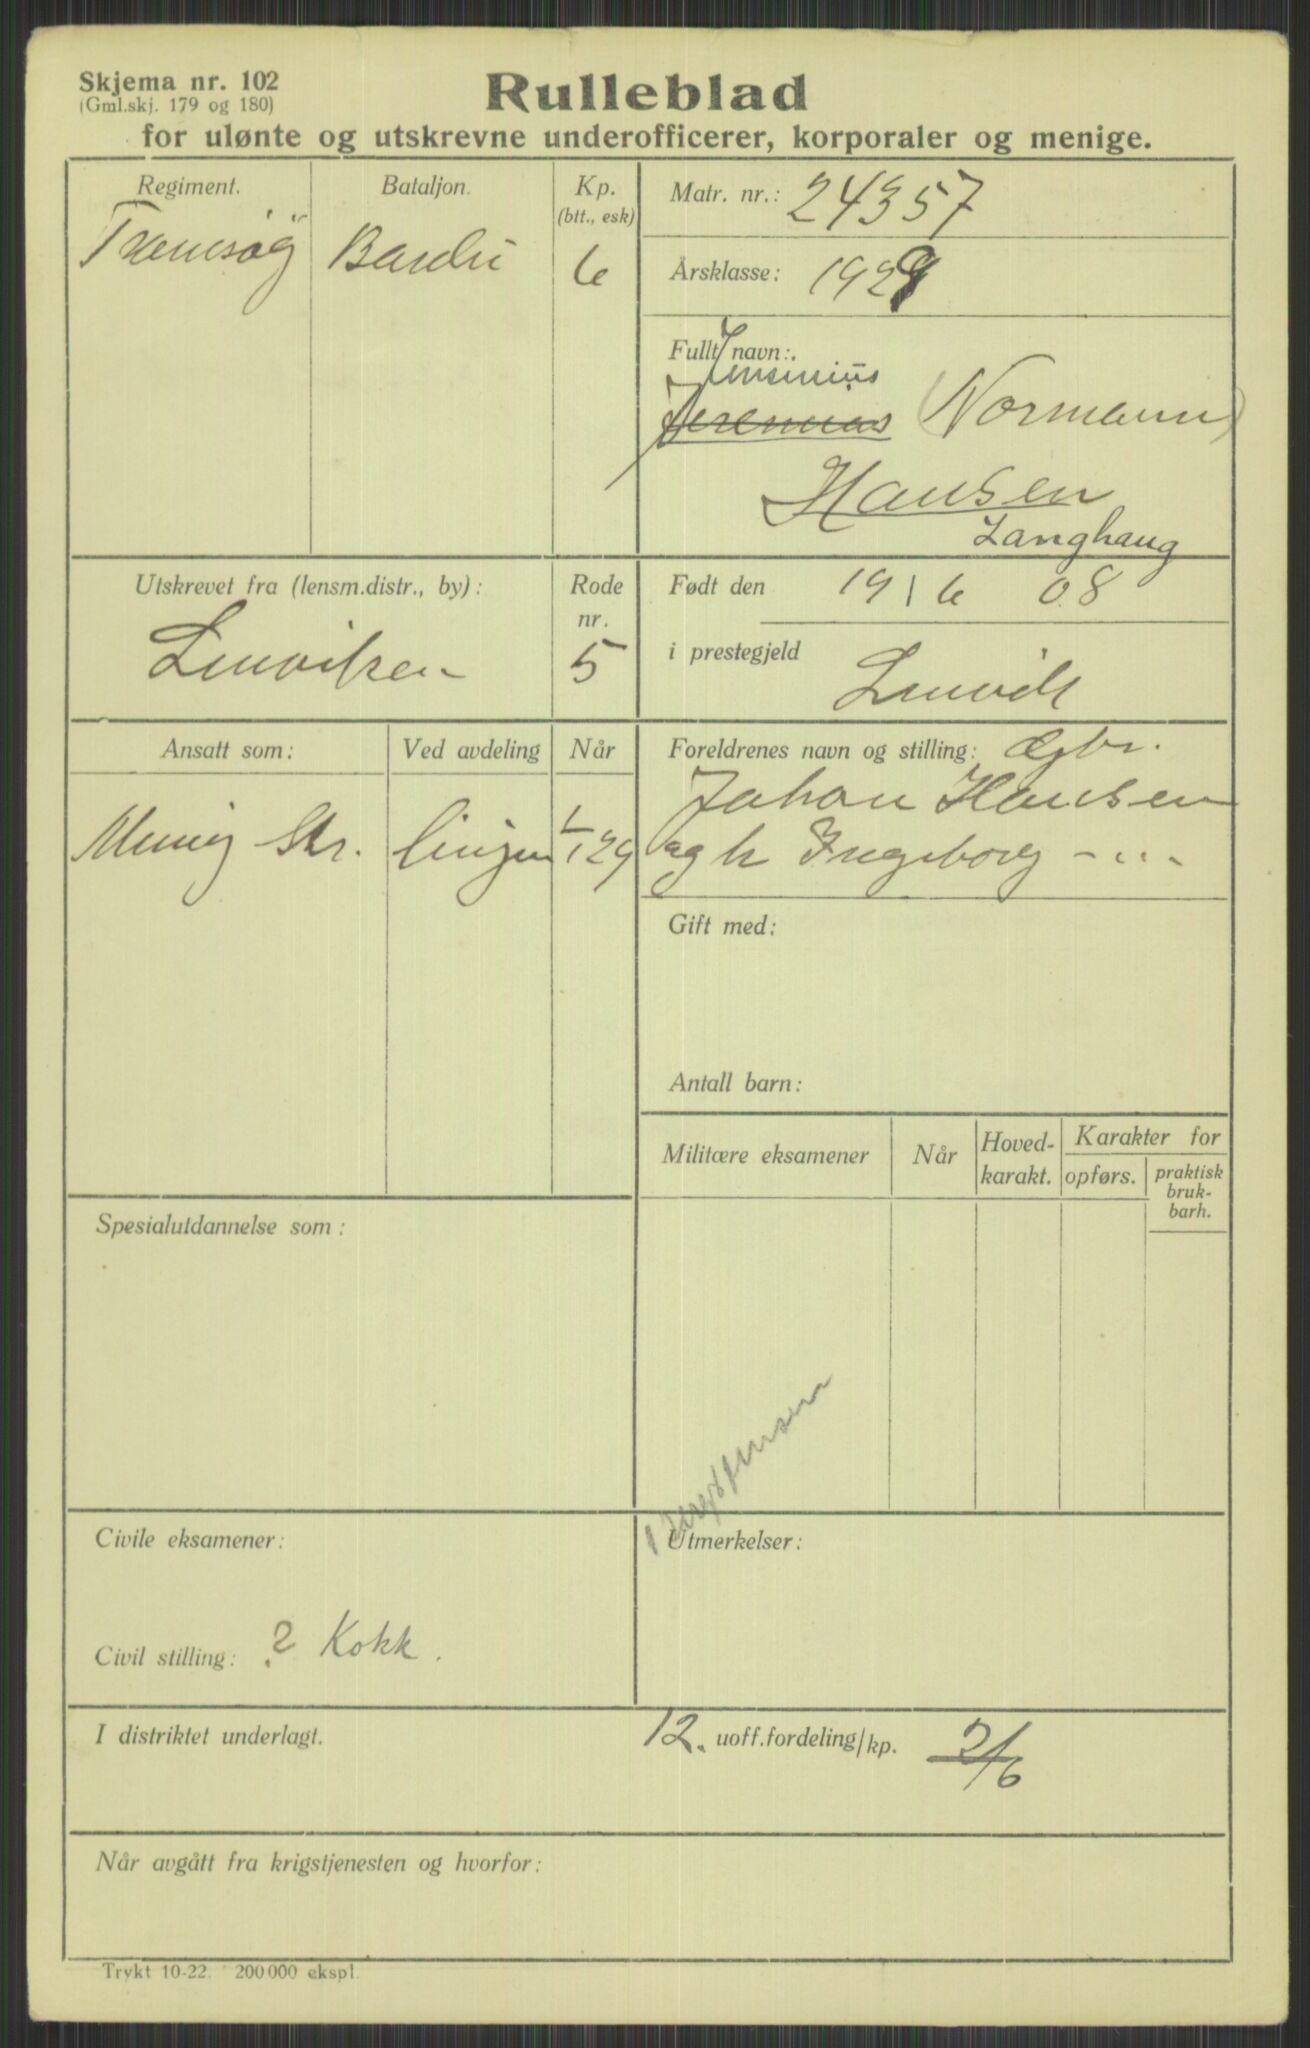 Skjema nr. 102
(Gml.skj. 179 og 180)
Rulleblad
for ulønte og utskrevne underofficerer, korporaler og menige.
Regiment. Bataljon. Kp. (btt., esk)
Bardu 6
Matr. nr.: 24357
Årsklasse: 1929
Fullt navn:
Jensenius
Jeremias (Normann)
Hansen
Langhaug
Utskrevet fra (lensm.distr., by): Rode nr.
Lenviken 5
Født den 19/6 08
i prestegjeld
Lenvik
Ansatt som: Ved avdeling Når
Menig Str. linjen 1/1 29
Foreldrenes navn og stilling: Gbr.
Johan Hansen
og h Ingeborg -"-
Gift med:
Antall barn:
Militære eksamener Når Hoved-karakt. Karakter for
opførs. praktisk bruk-barh.
Spesialutdannelse som:
Civile eksamener:
Utmerkelser:
Civil stilling: ? Kokk.
I distriktet underlagt. 12. uoff.fordeling/kp. 2/6
Når avgått fra krigstjenesten og hvorfor:
Trykt 10-22. 200000 ekspl.